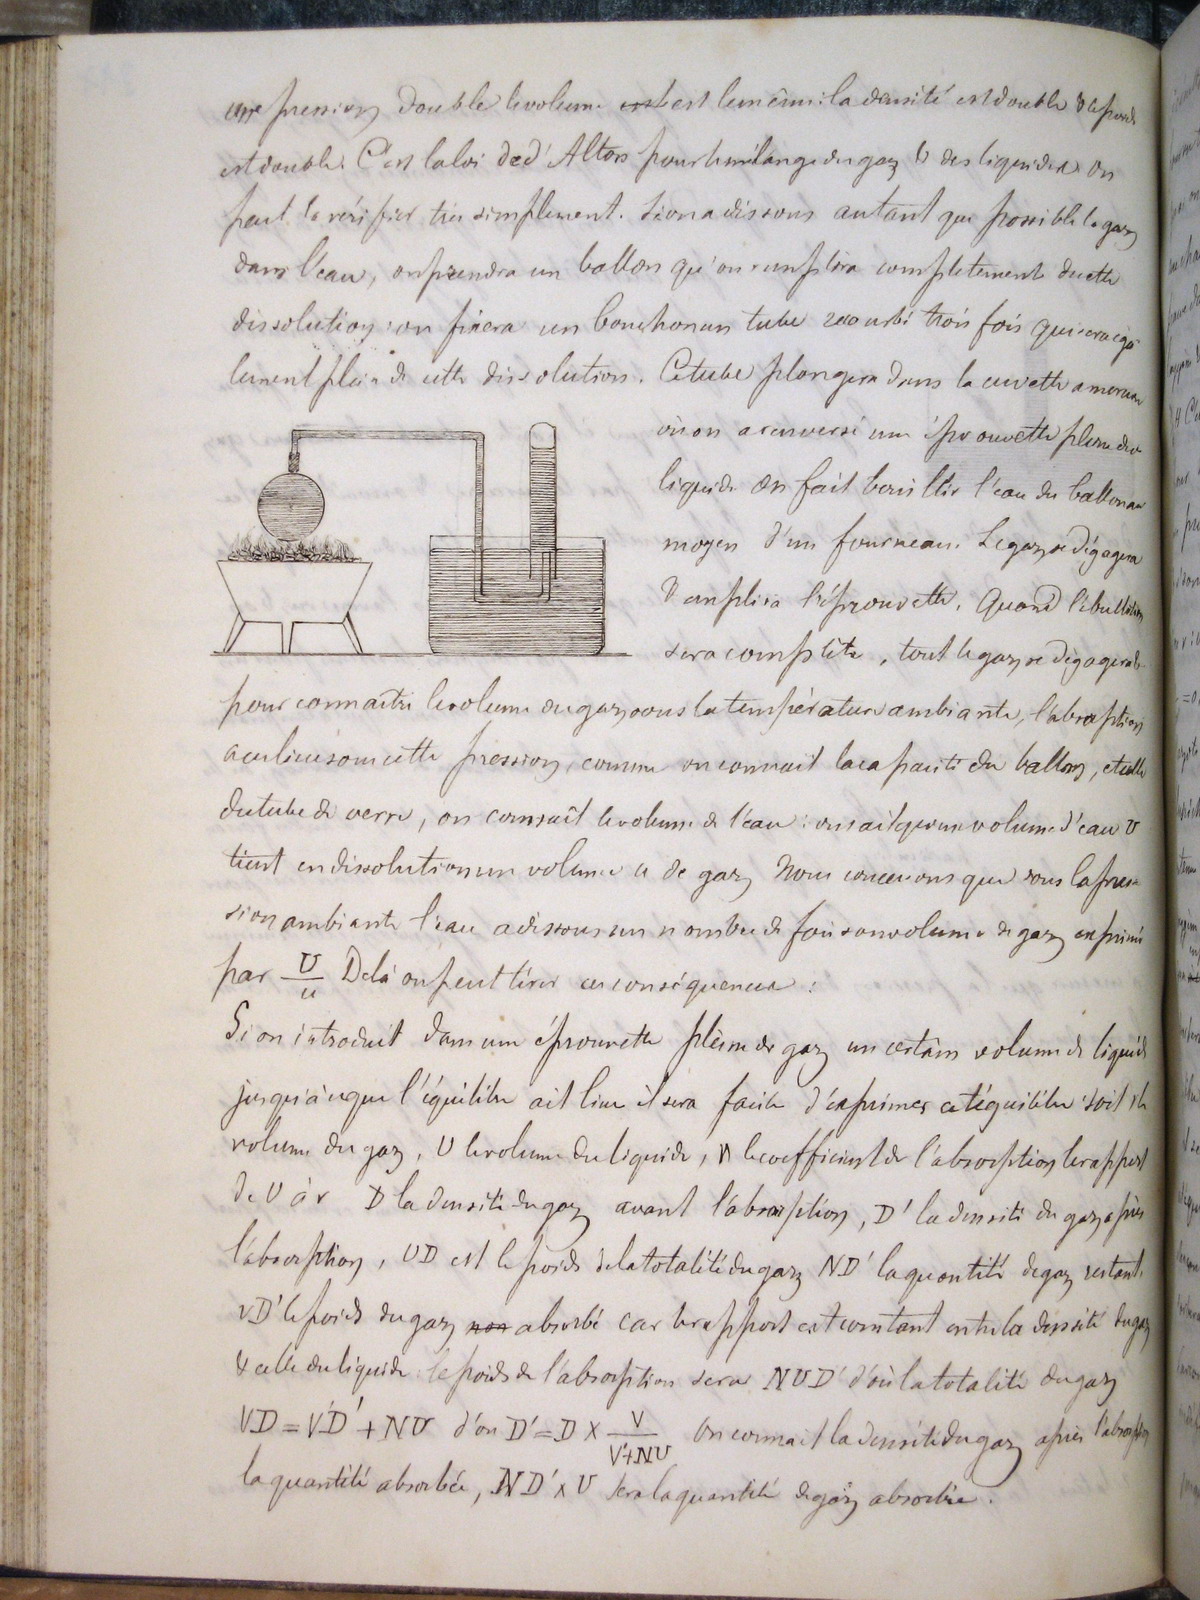 une pression double le volume est est le même : la densité est double & le poids
est double. C'est la loi de d'Alton pour le mélange du gaz & des liquides. On
peut la vérifier très simplement. Si on a dissous autant que possible le gaz
dans l'eau, on prendra un ballon qu'on remplira completement de cette
dissolution : on fixera un bouchon un tube recourbé trois fois qui sera éga-
lement plein de cette dissolution. Ce tube plongera dans la cuvette a mercure
où on a renversé une éprouvette pleine de
liquide On fait bouillir l'eau du ballon au
moyen d'un fourneau. Le gaz se dégagera
& emplira l'éprouvette. Quand l'ébullition
sera complète, tout le gaz se dégagera
pour connaître le volume du gaz sous la température ambiante, l'absorption
a eu lieu sous cette pression, comme on connait la capacité du ballon, et celle
du tube de verre, on connaît le volume de l'eau : on sait qu'un volume d'eau U
tient en dissolution un volume u de gaz Nous concevons que sous la pres-
sion ambiante l'eau a dissous un nombre de fois son volume de gaz exprimé
par U/u De là on peut tirer ces conséquences :
Si on introduit dans une éprouvette pleine de gaz un certain volume de liquide
jusqu'à ce que l'équilibre ait lieu il sera facile d'exprimer cet équilibre soit v le
volume du gaz, U le volume du liquide, N le coefficient de l'absorption le rapport
de U à v D la densité du gaz avant l'absorption, D' la densité du gaz après
l'absorption, UD est le poids de la totalité du gaz ND' la quantité de gaz restant.
vD' le poids du gaz non absorbé car le rapport est constant entre la densité du gaz
& celle du liquide le poids de l'absorption sera NUD' d'où la totalité du gaz
VD = V'D' + NU d'ou D' = D × V/V'+NU On connait la densité du gaz après l'absorption
la quantité absorbée, ND' × U sera la quantité de gaz absorbée.